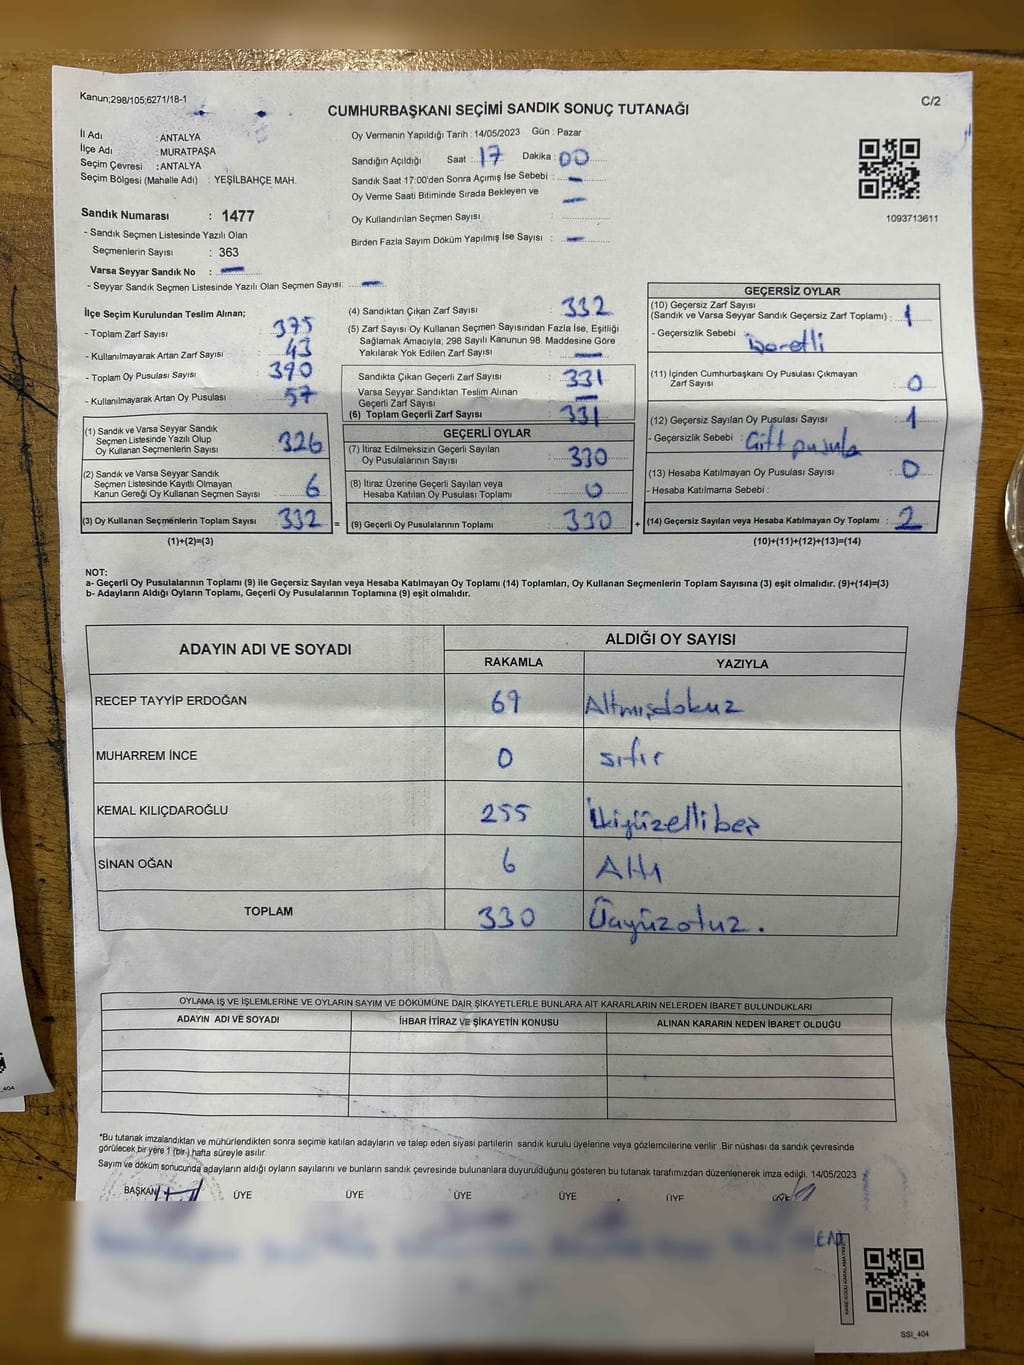 Kanun;298/105;6271/18-1
C/2
CUMHURBAŞKANI SEÇİMİ SANDIK SONUÇ TUTANAĞI
İl Adı : ANTALYA
İlçe Adı : MURATPAŞA
Seçim Çevresi : ANTALYA
Seçim Bölgesi (Mahalle Adı) : YEŞİLBAHÇE MAH.
Oy Vermenin Yapıldığı Tarih : 14/05/2023 Gün : Pazar
Sandığın Açıldığı Saat : 17 Dakika : 00
Sandık Saat 17:00'den Sonra Açımış İse Sebebi : —
Oy Verme Saati Bitiminde Sırada Bekleyen ve —
Oy Kullandırılan Seçmen Sayısı :
Birden Fazla Sayım Döküm Yapılmış İse Sayısı : —
1093713611
Sandık Numarası : 1477
- Sandık Seçmen Listesinde Yazılı Olan
Seçmenlerin Sayısı : 363
Varsa Seyyar Sandık No : —
- Seyyar Sandık Seçmen Listesinde Yazılı Olan Seçmen Sayısı: —
İlçe Seçim Kurulundan Teslim Alınan;
- Toplam Zarf Sayısı : 375
- Kullanılmayarak Artan Zarf Sayısı : 43
- Toplam Oy Pusulası Sayısı : 390
- Kullanılmayarak Artan Oy Pusulası : 57
(1) Sandık ve Varsa Seyyar Sandık
Seçmen Listesinde Yazılı Olup
Oy Kullanan Seçmenlerin Sayısı : 326
(2) Sandık ve Varsa Seyyar Sandık
Seçmen Listesinde Kayıtlı Olmayan
Kanun Gereği Oy Kullanan Seçmen Sayısı : 6
(3) Oy Kullanan Seçmenlerin Toplam Sayısı : 332 =
(1)+(2)=(3)
(4) Sandıktan Çıkan Zarf Sayısı : 332
(5) Zarf Sayısı Oy Kullanan Seçmen Sayısından Fazla İse, Eşitliği
Sağlamak Amacıyla; 298 Sayılı Kanunun 98. Maddesine Göre
Yakılarak Yok Edilen Zarf Sayısı : —
Sandıkta Çıkan Geçerli Zarf Sayısı : 331
Varsa Seyyar Sandıktan Teslim Alınan
Geçerli Zarf Sayısı : —
(6) Toplam Geçerli Zarf Sayısı : 331
GEÇERLİ OYLAR
(7) İtiraz Edilmeksizin Geçerli Sayılan
Oy Pusulalarının Sayısı : 330
(8) İtiraz Üzerine Geçerli Sayılan veya
Hesaba Katılan Oy Pusulası Toplamı : 0
(9) Geçerli Oy Pusulalarının Toplamı : 330 +
GEÇERSİZ OYLAR
(10) Geçersiz Zarf Sayısı
(Sandık ve Varsa Seyyar Sandık Geçersiz Zarf Toplamı) : 1
- Geçersizlik Sebebi : İşaretli
(11) İçinden Cumhurbaşkanı Oy Pusulası Çıkmayan
Zarf Sayısı : 0
(12) Geçersiz Sayılan Oy Pusulası Sayısı : 1
- Geçersizlik Sebebi : Çift pusula
(13) Hesaba Katılmayan Oy Pusulası Sayısı : 0
- Hesaba Katılmama Sebebi :
(14) Geçersiz Sayılan veya Hesaba Katılmayan Oy Toplamı : 2
(10)+(11)+(12)+(13)=(14)
NOT:
a- Geçerli Oy Pusulalarının Toplamı (9) ile Geçersiz Sayılan veya Hesaba Katılmayan Oy Toplamı (14) Toplamları, Oy Kullanan Seçmenlerin Toplam Sayısına (3) eşit olmalıdır. (9)+(14)=(3)
b- Adayların Aldığı Oyların Toplamı, Geçerli Oy Pusulalarının Toplamına (9) eşit olmalıdır.
ADAYIN ADI VE SOYADI
ALDIĞI OY SAYISI
RAKAMLA YAZIYLA
RECEP TAYYİP ERDOĞAN 69 Altmışdokuz
MUHARREM İNCE 0 sıfır
KEMAL KILIÇDAROĞLU 255 İkiyüzellibeş
SİNAN OĞAN 6 Altı
TOPLAM 330 Üçyüzotuz.
OYLAMA İŞ VE İŞLEMLERİNE VE OYLARIN SAYIM VE DÖKÜMÜNE DAİR ŞİKAYETLERLE BUNLARA AİT KARARLARIN NELERDEN İBARET BULUNDUKLARI
ADAYIN ADI VE SOYADI İHBAR İTİRAZ VE ŞİKAYETİN KONUSU ALINAN KARARIN NEDEN İBARET OLDUĞU
*Bu tutanak imzalandıktan ve mühürlendikten sonra seçime katılan adayların ve talep eden siyasi partilerin sandık kurulu üyelerine veya gözlemcilerine verilir. Bir nüshası da sandık çevresinde
görülecek bir yere 1 (bir) hafta süreyle asılır.
Sayım ve döküm sonucunda adayların aldığı oyların sayılarını ve bunların sandık çevresinde bulunanlara duyurulduğunu gösteren bu tutanak tarafımızdan düzenlenerek imza edildi. 14/05/2023
BAŞKAN ÜYE ÜYE ÜYE ÜYE ÜYE ÜYE
SSI_404